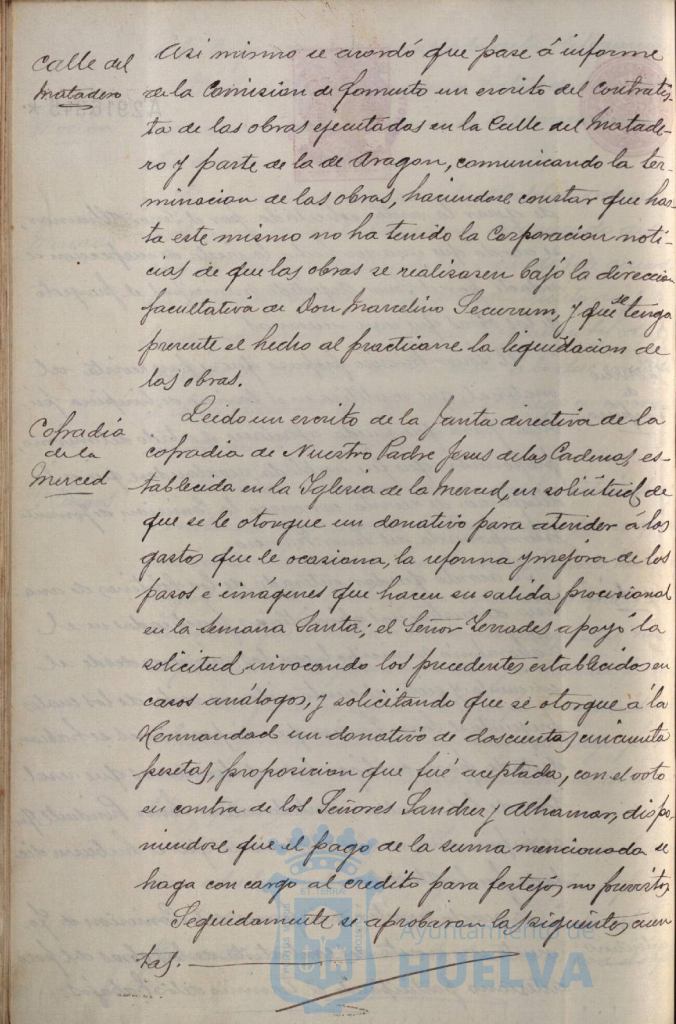 Calle del
Matadero
Asi mismo se acordó que pase á informe
de la Comision de fomento un escrito del contratis-
ta de las obras ejecutadas en la Calle del Matade-
ro y parte de la de Aragon, comunicando la ter-
minacion de las obras, haciendose constar que has-
ta este mismo no ha tenido la Corporacion noti-
cias de que las obras se realisasen bajo la direccion
facultativa de Don Marcelino y que se tenga
presente el hecho al practicarse la liquidacion de
las obras.
Cofradia
de la
Merced
Leido un escrito de la Junta directiva de la
cofradia de Nuestro Padre Jesus de las Cadenas, es-
tablecida en la Iglesia de la Merced, en solicitud de
que se le otorgue un donativo para atender á los
gastos que le ocasiona, la reforma y mejora de los
pasos é imágenes que hacen su salida procesional
en la Semana Santa; el Señor Terrades apoyó la
solicitud invocando los precedentes establecidos en
casos análogos, y solicitando que se otorgue á la
Hermandad un donativo de doscientas cincuenta
pesetas, proposicion que fué aceptada, con el voto
en contra de los Señores Sanchez y Alhamar, dispo-
niendose que el pago de la suma mencionada se
haga con cargo al credito para festejos no previstos.
Seguidamente se aprobaron las siguientes cuen-
tas.
Ayuntamiento de
HUELVA